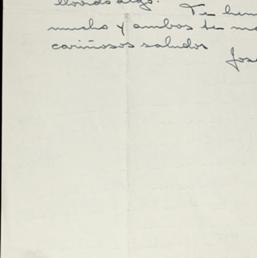 llovido algo. Te hem
mucho y ambos te ma
cariñosos saludos
José